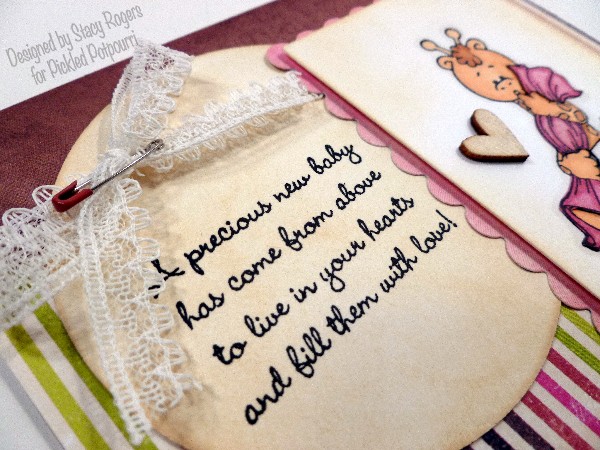 Designed by Stacy Rogers
for Pickled Potpourri
A precious new baby
has come from above
to live in your hearts
and fill them with love!